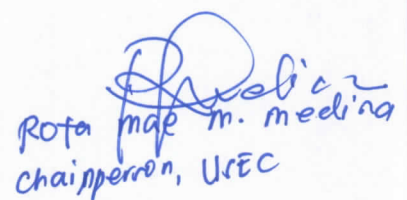 Rofa mae m. medina
chainperron, USEC